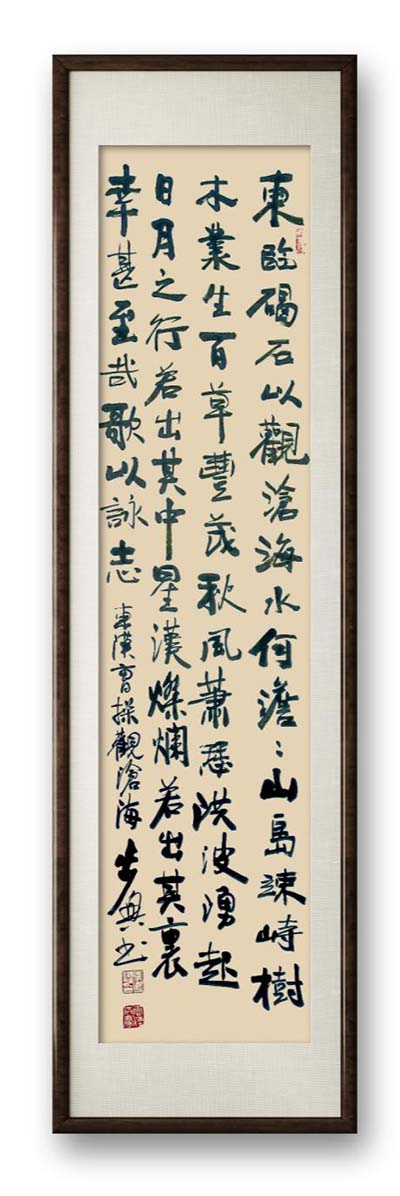 東臨碣石以觀滄海水何澹：山島竦峙樹
木叢生百草豐茂秋風蕭瑟洪波湧起
日月之行若出其中星漢燦爛若出其裏
幸甚至哉歌以詠志 東漢曹操觀滄海 书